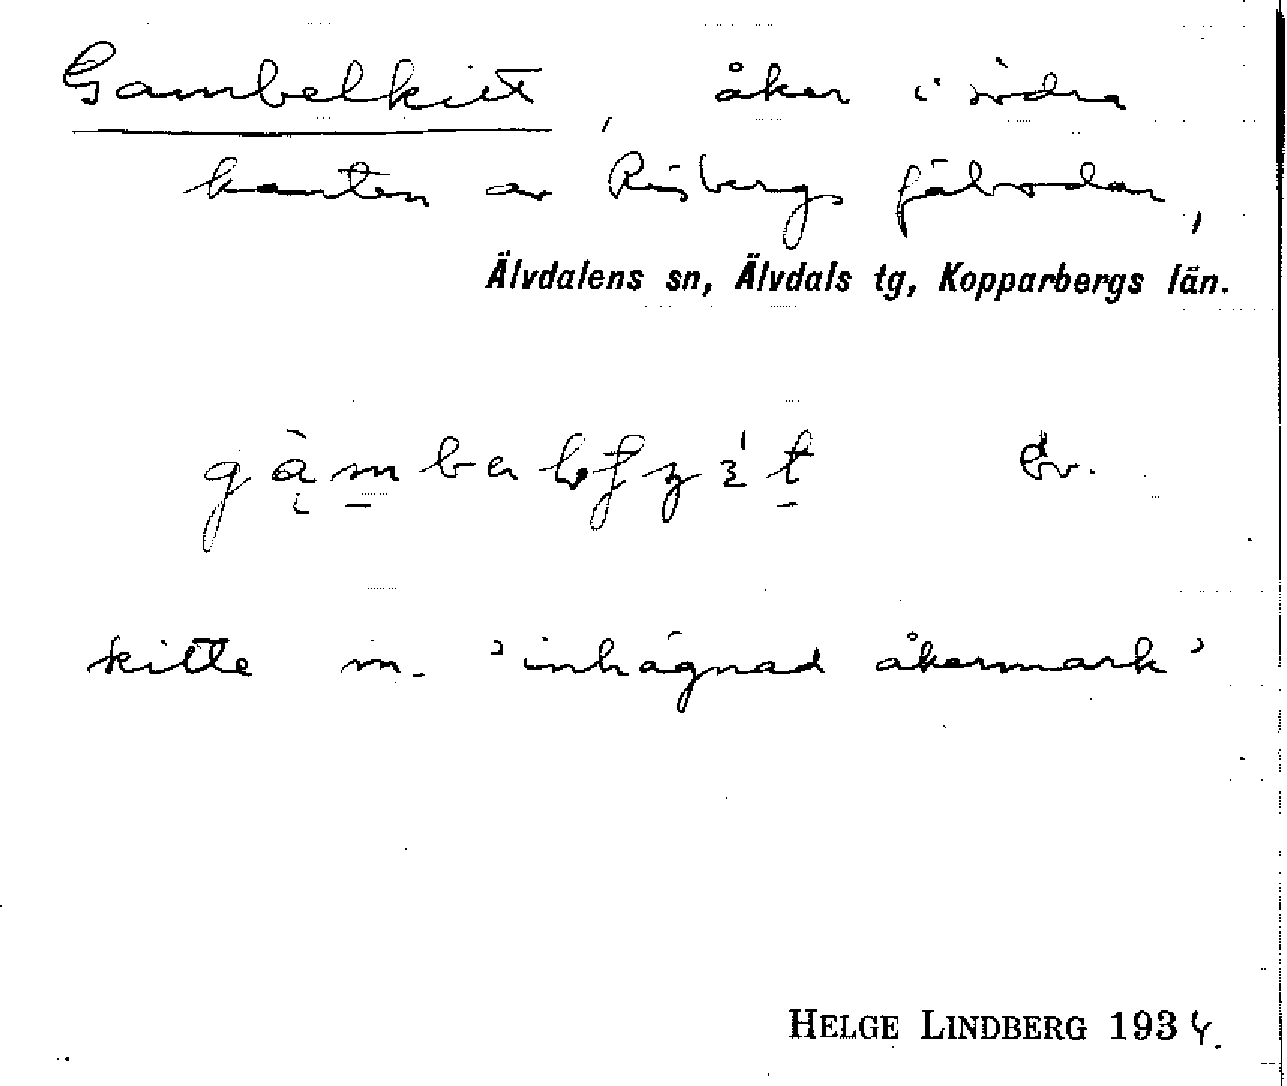 Gambelkitt, åker i södra
kanten av Risbergs fäbodar,
Älvdalens sn, Älvdals tg, Kopparbergs län.
kitte m. 'inhägnad åkermark'
HELGE LINDBERG 1934.